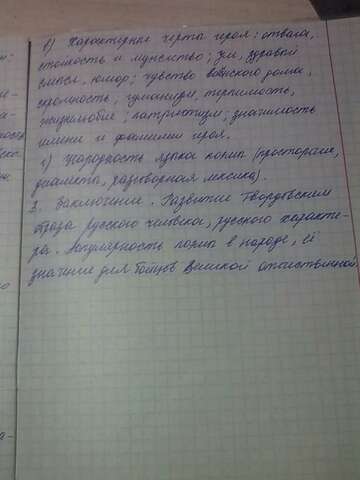 в) Характерные черты героя: отвага,
стойкость и мужество; ум, здравый
смысл, юмор; чувство воинского долга,
скромность; гуманизм, терпимость,
жизнелюбие; патриотизм; значимость
имени и фамилии героя.
г) Народность языка поэмы (просторечие,
диалекты, разговорная лексика).
3. Заключение. Развитие Твардовским
образа русского человека, русского характе-
ра. Популярность поэмы в народе, её
значение для бойцов Великой отечественной